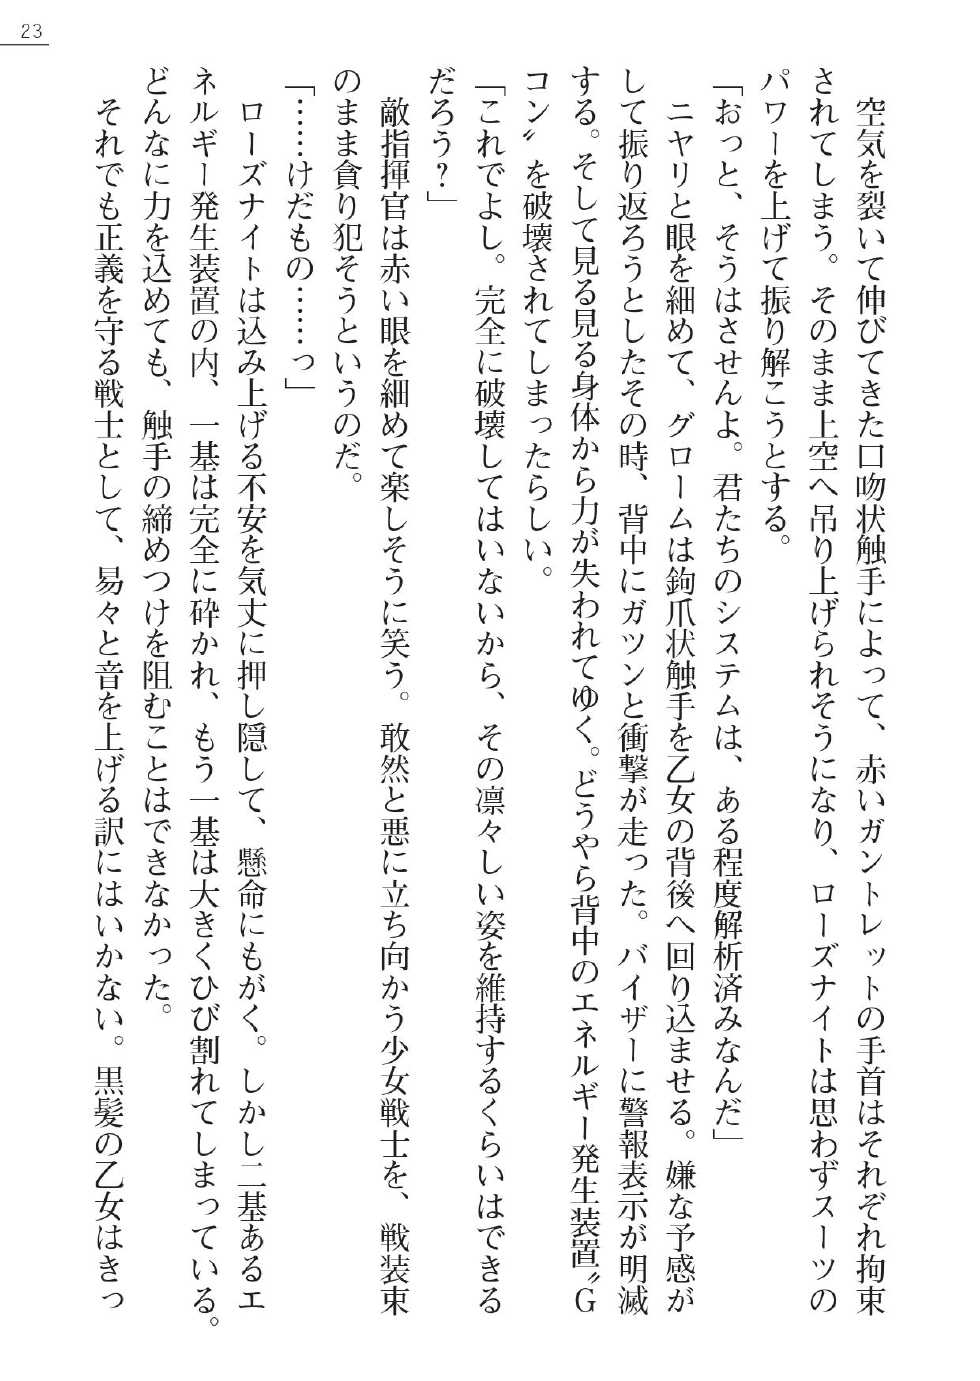 23
空気を裂いて伸びてきた口吻状触手によって、赤いガントレットの手首はそれぞれ拘束
されてしまう。そのまま上空へ吊り上げられそうになり、ローズナイトは思わずスーツの
パワーを上げて振り解こうとする。
「おっと、そうはさせんよ。君たちのシステムは、ある程度解析済みなんだ」
ニヤリと眼を細めて、グロームは鉤爪状触手を乙女の背後へ回り込ませる。嫌な予感が
して振り返ろうとしたその時、背中にガツンと衝撃が走った。バイザーに警報表示が明滅
する。そして見る見る身体から力が失われてゆく。どうやら背中のエネルギー発生装置〝G
コン〟を破壊されてしまったらしい。
「これでよし。完全に破壊してはいないから、その凛々しい姿を維持するくらいはできる
だろう?」
敵指揮官は赤い眼を細めて楽しそうに笑う。敢然と悪に立ち向かう少女戦士を、戦装束
のまま貪り犯そうというのだ。
「……けだもの……っ」
ローズナイトは込み上げる不安を気丈に押し隠して、懸命にもがく。しかし二基あるエ
ネルギー発生装置の内、一基は完全に砕かれ、もう一基は大きくひび割れてしまっている。
どんなに力を込めても、触手の締めつけを阻むことはできなかった。
それでも正義を守る戦士として、易々と音を上げる訳にはいかない。黒髪の乙女はきっ